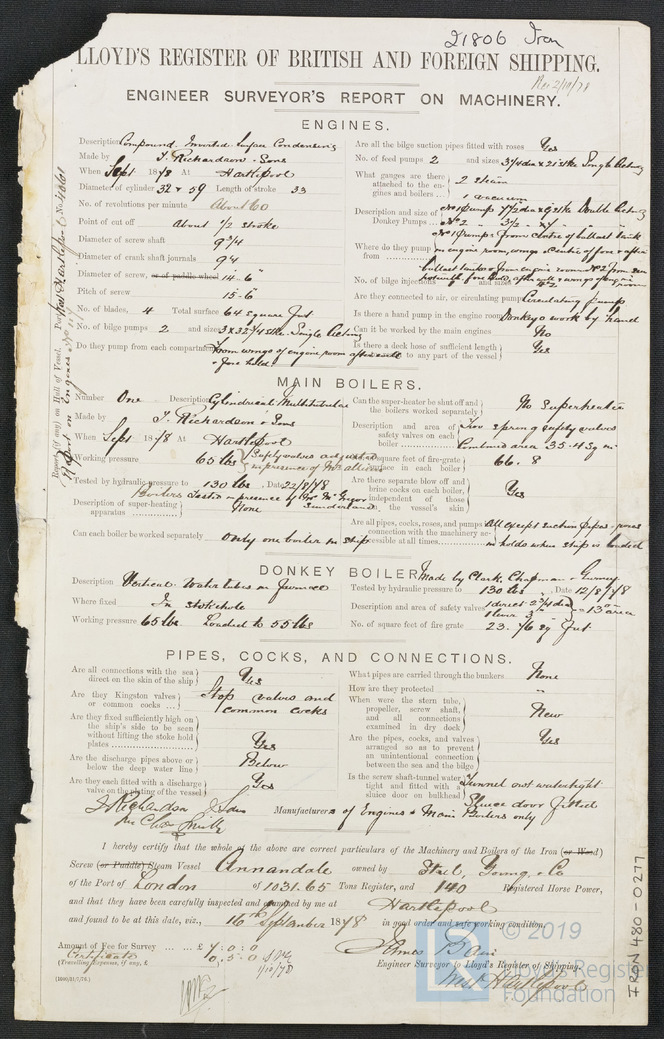 21806 Iron
LLOYD'S REGISTER OF BRITISH AND FOREIGN SHIPPING.
Rec 2/10/78
ENGINEER SURVEYOR'S REPORT ON MACHINERY.
ENGINES.
Description Compound Inverted Surface Condensing
Made by T. Richardson & Sons
When Sept 1878 At Hartlepool
Diameter of cylinder 32 & 59 Length of stroke 33
No. of revolutions per minute About 60
Point of cut off about 1/2 stroke
Diameter of screw shaft 9 3/4
Diameter of crank shaft journals 9 3/4
Diameter of screw, or of paddle wheel 14-6"
Pitch of screw 15-6
No. of blades, 4 Total surface 64 square feet
No. of bilge pumps 2 and sizes 3 x 32 1/4 stke Single Acting
Do they pump from each compartment From wings of engine room after well
& fore hold
Are all the bilge suction pipes fitted with roses Yes
No. of feed pumps 2 and sizes 3 1/4 dia x 21 stke Single Acting
What gauges are there attached to the engines and boilers 2 steam
1 vacuum
Description and size of Donkey Pumps No 1 pump 7 1/2 dia x 9 stke Double Acting
No 2 " 3 1/2 " x 7 " " "
Where do they pump from No 1 pumps from centre of ballast tank
in engine room, wings & centre of fore & after
ballast tanks & from engine room No 2 from sea
No. of bilge injections and sizes
Are they connected to air, or circulating pump Circulating pump
Is there a hand pump in the engine room Donkey & work by hand
Can it be worked by the main engines No
Is there a deck hose of sufficient length to any part of the vessel Yes
MAIN BOILERS.
Number One Description Cylindrical Multitubular
Made by T. Richardson & Sons
When Sept 1878 At Hartlepool
Working pressure 65 lbs Safety valves adjusted
in presence of Mr
Tested by hydraulic pressure to 130 lbs Date 22/8/78
Boilers Tested in presence of Mr McGregor
Sunderland
Description of super-heating apparatus None
Can each boiler be worked separately Only one boiler in ship
Can the superheater be shut off and the boilers worked separately No Superheater
Description and area of safety valves on each boiler Two spring safety valves
Combined area 35.4 sq in
No. of square feet of fire-grate surface in each boiler 66.8
Are there separate blow off and brine cocks on each boiler, independent of those on the vessel's skin Yes
Are all pipes, cocks, roses, and pumps in connection with the machinery accessible at all times All except suction pipes & roses
in holds when ship is loaded
DONKEY BOILER Made by Clark, Chapman & Gurney
Description Vertical Water tubes in furnace
Where fixed In stokehole
Working pressure 65 lbs Loaded to 55 lbs
Tested by hydraulic pressure to 130 lbs Date 12/8/78
Description and area of safety valves 1 direct 2 3/4 dia
1 lever 3" " = 13" area
No. of square feet of fire grate 23.76 sq feet
PIPES, COCKS, AND CONNECTIONS.
Are all connections with the sea direct on the skin of the ship Yes
Are they Kingston valves or common cocks Stop valves and
common cocks
Are they fixed sufficiently high on the ship's side to be seen without lifting the stoke hold plates Yes
Are the discharge pipes above or below the deep water line Below
Are they each fitted with a discharge valve on the plating of the vessel Yes
What pipes are carried through the bunkers None
How are they protected "
When were the stern tube, propeller, screw shaft, and all connections examined in dry dock New
Are the pipes, cocks, and valves arranged so as to prevent an unintentional connection between the sea and the bilge Yes
Is the screw shaft-tunnel water tight and fitted with a sluice door on bulkhead Tunnel not watertight
Sluice door fitted
T Richardson & Sons
Manufacturers of Engines & Main Boilers only
per Chas Smith
I hereby certify that the whole of the above are correct particulars of the Machinery and Boilers of the Iron (or Wood)
Screw (or Paddle) Steam Vessel Annandale owned by Steel, Young & Co
of the Port of London of 1031.65 Tons Register, and 140 Registered Horse Power,
and that they have been carefully inspected and examined by me at Hartlepool
and found to be at this date, viz., 16th September 1878 in good order and safe working condition.
Amount of Fee for Survey £ 7:0:0
Certificate 0.5.0
(Travelling Expenses, if any, £ 1/10/78
Engineer Surveyor to Lloyd's Register of Shipping
West Hartlepool
© 2019
Lloyd's Register
Foundation
IRON 480-0277